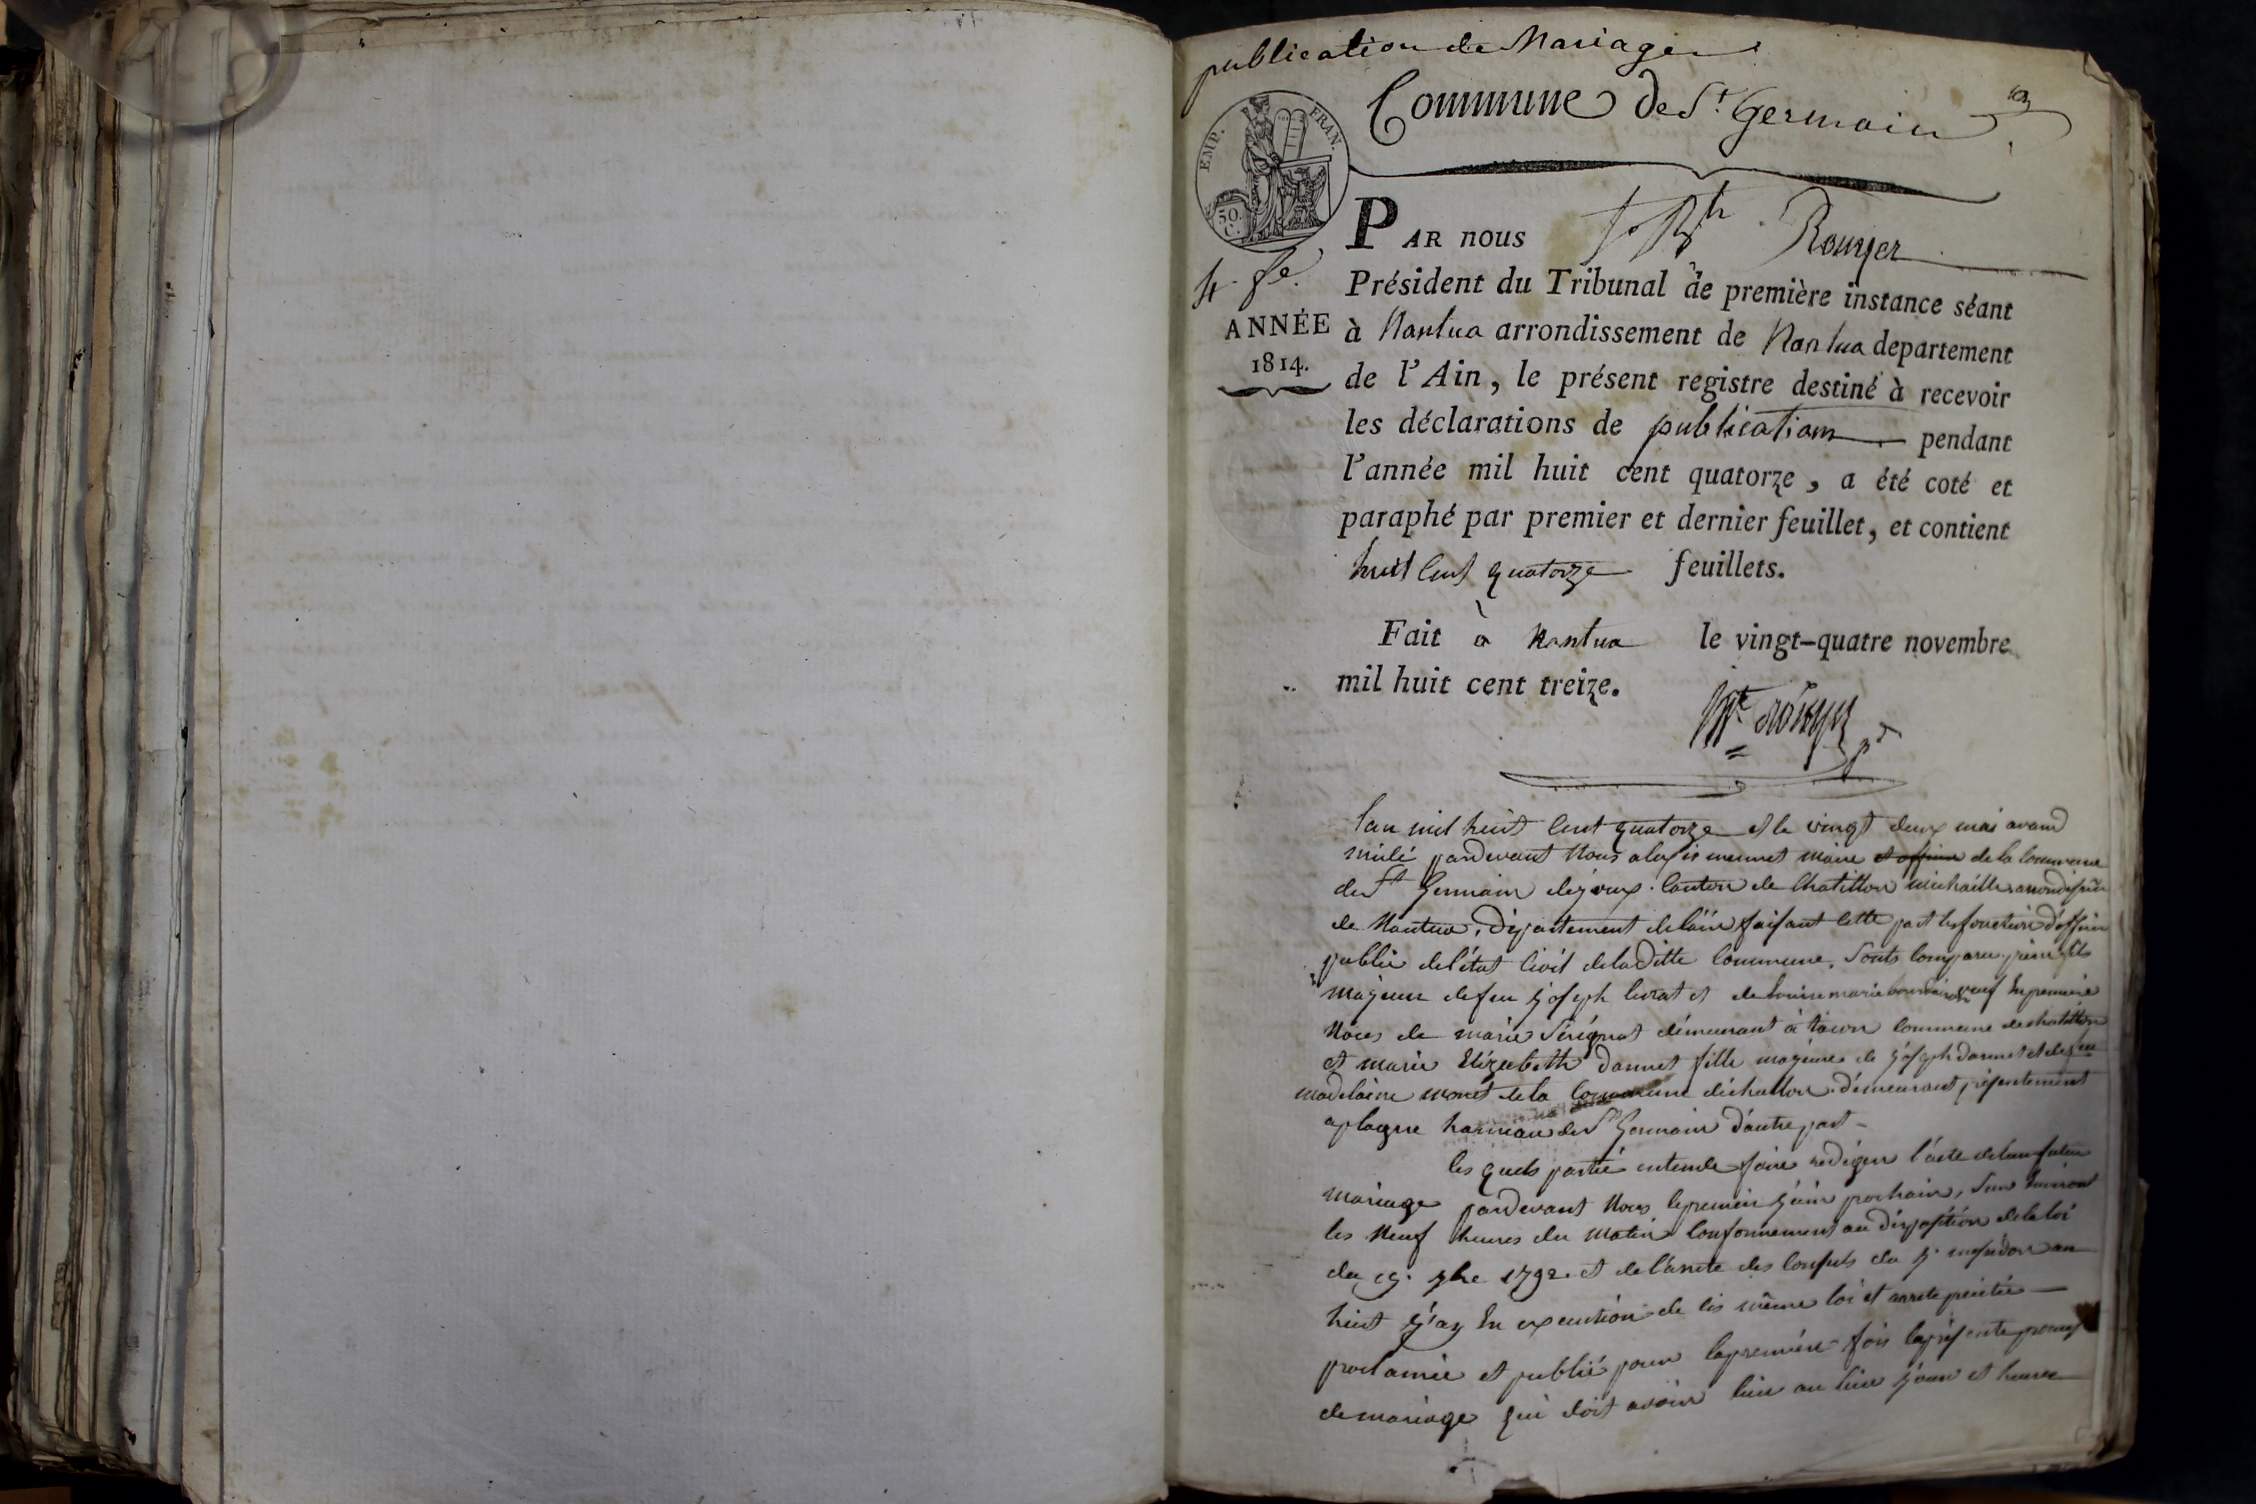 publication de Mariage
Commune de St. Germain
EMP. FRAN.
50.
C.
PAR nous Rouyer
4 fe.
Président du Tribunal de première instance séant
ANNÉE
1814.
à Nantua arrondissement de Nantua departement
de l'Ain, le présent registre destiné à recevoir
les déclarations de publication pendant
l'année mil huit cent quatorze, a été coté et
paraphé par premier et dernier feuillet, et contient
huit cent quatorze feuillets.
Fait à Nantua le vingt-quatre novembre
mil huit cent treize.
lan mil huit cent quatorze et le vingt deux mai avand
midi pardevant Nous alexis mermet maire et officier de la Commune
de St Germain dejoux Canton de Chatillon michaille
de Nantua, département de lain faisant cette part les fonction
public de létat Civil de laditte Commune, Sonts comparu
majeur de feu josoph livrat et de louise marie veuf En premiere
Noces de marie demeurant à tacon Commune de chatillon
et marie Elizeabeth fille majeure de josoph
madelaine monet de la Commune déchallon demeurant présentement
a plagne hameau de St Germain d'autre part
les quels partie entende faire rediger l'acte de leur futur
mariage pardevant Nous le premier juin prochain,
les Neuf heures du matin Conformement au disposition de la loi
du 19. 7bre 1792. et de l'arrete des Consuls du 7. mesidor an
huit j'ay En execution de les même loi et arrete
proclamée et publié pour la premiere fois la présente
de mariage qui doit avoir lieu au lieu jour et heure